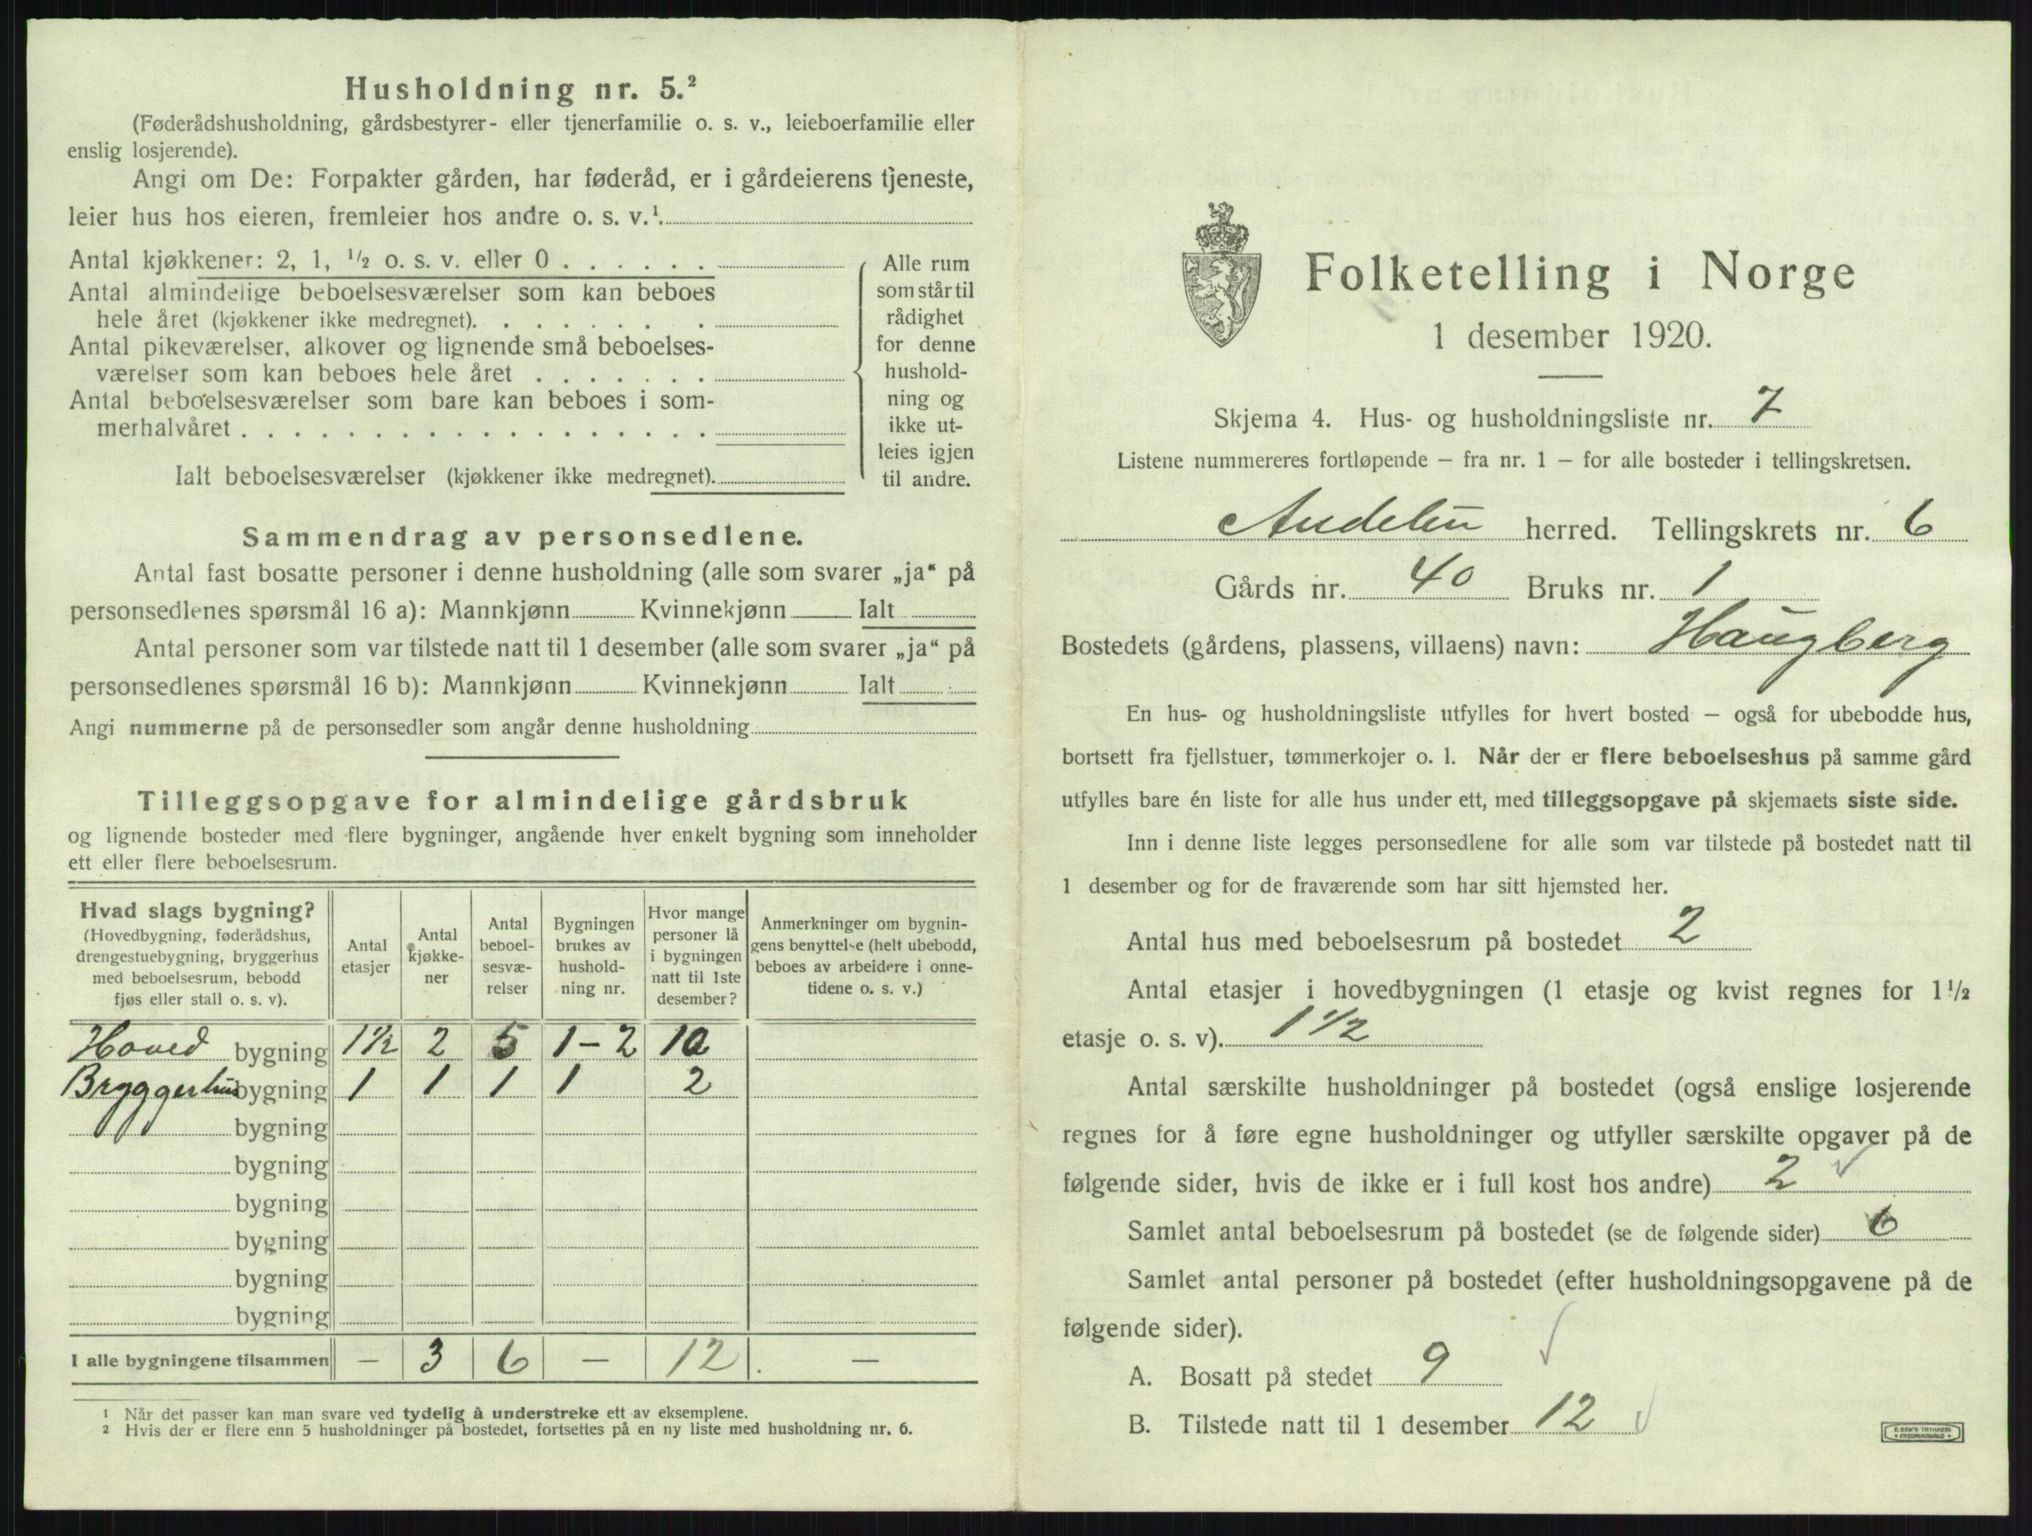 Husholdning nr. 5.²
(Føderådshusholdning, gårdsbestyrer- eller tjenerfamilie o. s. v., leieboerfamilie eller
enslig losjerende).
Angi om De: Forpakter gården, har føderåd, er i gårdeierens tjeneste,
leier hus hos eieren, fremleier hos andre o. s. v.¹
Antal kjøkkener: 2, 1, ½ o. s. v. eller 0
Antal almindelige beboelsesværelser som kan beboes
hele året (kjøkkener ikke medregnet).
Antal pikeværelser, alkover og lignende små beboelses-
værelser som kan beboes hele året
Antal beboelsesværelser som bare kan beboes i som-
merhalvåret
Ialt beboelsesværelser (kjøkkener ikke medregnet).
Alle rum
som står til
rådighet
for denne
hushold-
ning og
ikke ut-
leies igjen
til andre.
Sammendrag av personsedlene.
Antal fast bosatte personer i denne husholdning (alle som svarer „ja“ på
personsedlenes spørsmål 16 a): Mannkjønn Kvinnekjønn Ialt
Antal personer som var tilstede natt til 1 desember (alle som svarer „ja“ på
personsedlenes spørsmål 16 b): Mannkjønn Kvinnekjønn Ialt
Angi nummerne på de personsedler som angår denne husholdning
Tilleggsopgave for almindelige gårdsbruk
og lignende bosteder med flere bygninger, angående hver enkelt bygning som inneholder
ett eller flere beboelsesrum.
Hvad slags bygning?
(Hovedbygning, føderådshus,
drengestuebygning, bryggerhus
med beboelsesrum, bebodd
fjøs eller stall o. s. v).
Antal
etasjer
Antal
kjøkke-
ner
Antal
beboel-
sesvæ-
relser
Bygningen
brukes av
hushold-
ning nr.
Hvor mange
personer lå
i bygningen
natt til 1ste
desember?
Anmerkninger om bygnin-
gens benyttelse (helt ubebodd,
beboes av arbeidere i onne-
tidene o. s. v.)
Hoved bygning 1½ 2 5 1-2 10
Bryggerhus bygning 1 1 1 1 2
bygning
bygning
bygning
bygning
bygning
bygning
I alle bygningene tilsammen — 3 6 — 12 —
¹ Når det passer kan man svare ved tydelig å understreke ett av eksemplene.
² Hvis der er flere enn 5 husholdninger på bostedet, fortsettes på en ny liste med husholdning nr. 6.
Folketelling i Norge
1 desember 1920.
Skjema 4. Hus- og husholdningsliste nr. 7
Listene nummereres fortløpende – fra nr. 1 – for alle bosteder i tellingskretsen.
Andebu herred. Tellingskrets nr. 6
Gårds nr. 40 Bruks nr. 1
Bostedets (gårdens, plassens, villaens) navn: Haugberg
En hus- og husholdningsliste utfylles for hvert bosted – også for ubebodde hus,
bortsett fra fjellstuer, tømmerkojer o. l. Når der er flere beboelseshus på samme gård
utfylles bare én liste for alle hus under ett, med tilleggsopgave på skjemaets siste side.
Inn i denne liste legges personsedlene for alle som var tilstede på bostedet natt til
1 desember og for de fraværende som har sitt hjemsted her.
Antal hus med beboelsesrum på bostedet 2
Antal etasjer i hovedbygningen (1 etasje og kvist regnes for 1½
etasje o. s. v). 1½
Antal særskilte husholdninger på bostedet (også enslige losjerende
regnes for å føre egne husholdninger og utfyller særskilte opgaver på de
følgende sider, hvis de ikke er i full kost hos andre) 2
Samlet antal beboelsesrum på bostedet (se de følgende sider) 6
Samlet antal personer på bostedet (efter husholdningsopgavene på de
følgende sider).
A. Bosatt på stedet 9
B. Tilstede natt til 1 desember 12